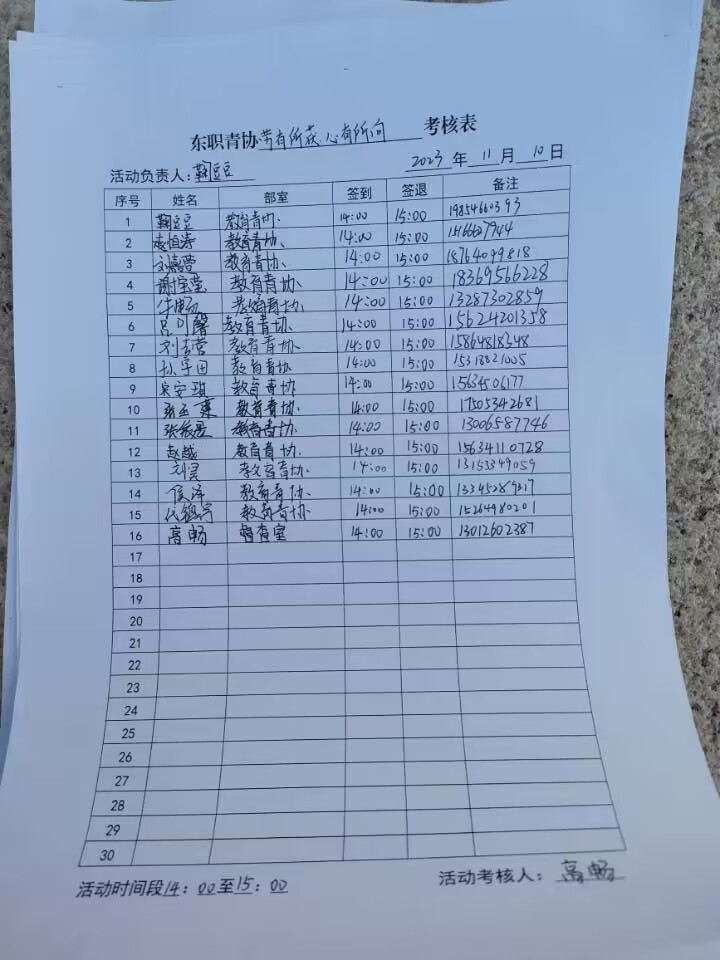 东职青协学有所获 心有所向 考核表
活动负责人:鞠豆豆 2023 年 11 月 10 日
序号 姓名 部室 签到 签退 备注
1 鞠豆豆 教育青协 14:00 15:00 19854660393
2 教育青协 14:00 15:00
3 刘嘉萱 教育青协 14:00 15:00 18764099818
4 谢宝莹 教育青协 14:00 15:00 18369566228
5 牛畅 教育青协 14:00 15:00 13287302859
6 吕可馨 教育青协 14:00 15:00 15624201358
7 教育青协 14:00 15:00 15864818348
8 孙宇田 教育青协 14:00 15:00 15318021005
9 教育青协 14:00 15:00 15634506177
10 教育青协 14:00 15:00 17505342681
11 教育青协 14:00 15:00 13006587746
12 赵越 教育青协 14:00 15:00 15634110728
13 教育青协 14:00 15:00 13153349059
14 侯泽 教育青协 14:00 15:00 13345289317
15 教育青协 14:00 15:00 15264980201
16 高畅 14:00 15:00 13012602387
17
18
19
20
21
22
23
24
25
26
27
28
29
30
活动时间段14:00至15:00 活动考核人:高畅